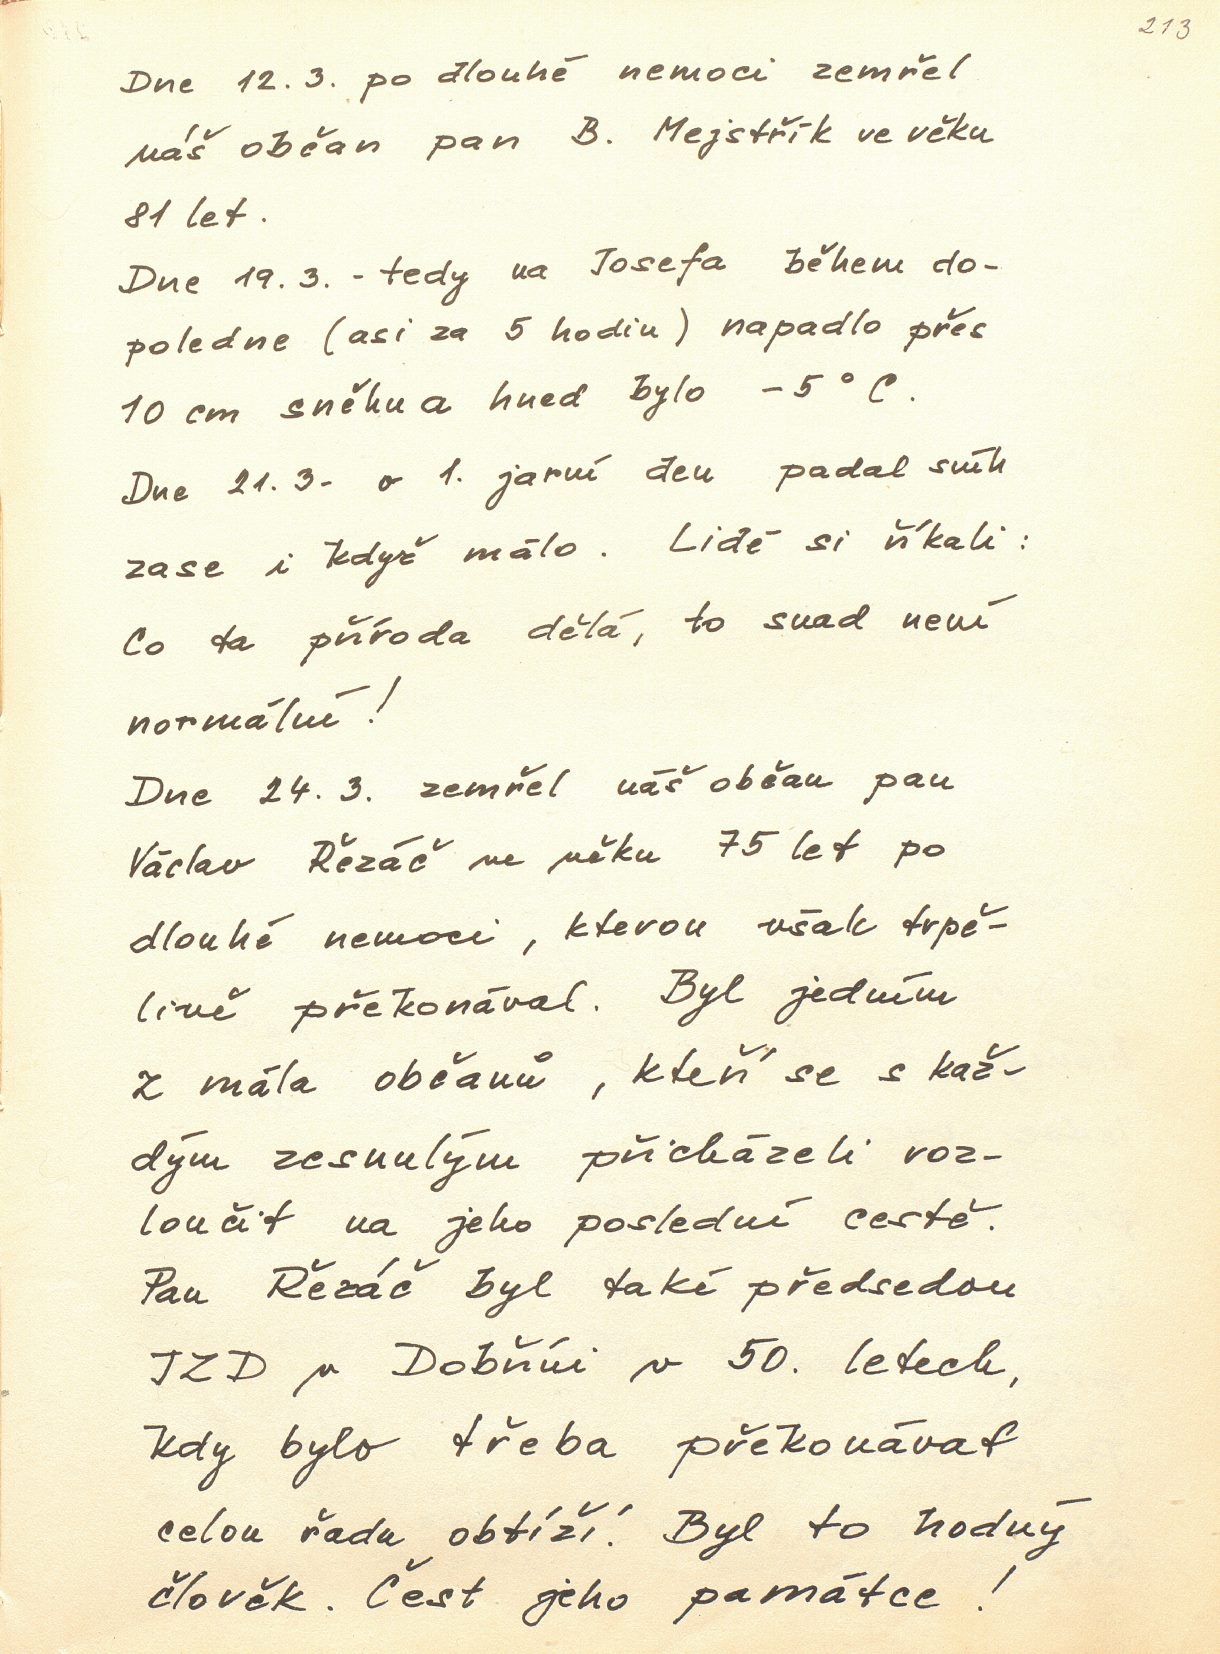 213
Dne 12. 3. po dlouhé nemoci zemřel
náš občan pan B. Mejstřík ve věku
81 let.
Dne 19. 3. - tedy na Josefa během do-
poledne (asi za 5 hodin) napadlo přes
10 cm sněhu a hned bylo -5° C.
Dne 21. 3. v 1. jarní den padal sníh
zase i když málo. Lidé si říkali:
Co ta příroda dělá, to snad není
normální!
Dne 24. 3. zemřel náš občan pan
Václav Řezáč ve věku 75 let po
dlouhé nemoci, kterou však trpě-
livě překonával. Byl jedním
z mála občanů, kteří se s kaž-
dým zesnulým přicházeli roz-
loučit na jeho poslední cestě.
Pan Řezáč byl také předsedou
JZD v Dobříni v 50. letech,
kdy bylo třeba překonávat
celou řadu obtíží. Byl to hodný
člověk. Čest jeho památce!